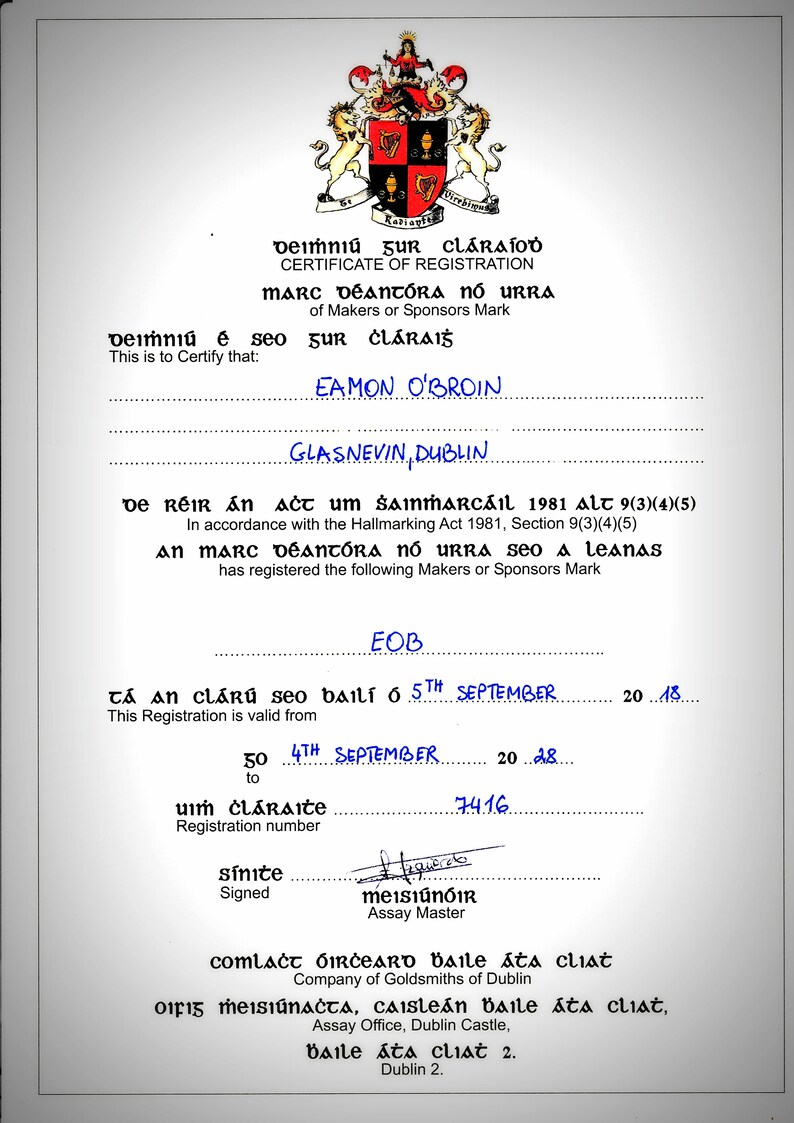 Te Radiante Virebimus
Deiṁniú gur Cláraíoḋ
CERTIFICATE OF REGISTRATION
Marc Déantóra nó Urra
of Makers or Sponsors Mark
Deiṁniú é seo gur ċláraiġ
This is to Certify that:
EAMON O'BROIN
GLASNEVIN, DUBLIN
De réir án aċt um ṡainṁarcáil 1981 alt 9(3)(4)(5)
In accordance with the Hallmarking Act 1981, Section 9(3)(4)(5)
an marc déantóra nó urra seo a leanas
has registered the following Makers or Sponsors Mark
EOB
Tá an clárú seo bailí ó 5TH SEPTEMBER 20 18
This Registration is valid from
go 4TH SEPTEMBER 20 28
to
Uiṁ ċláraite 7416
Registration number
Sínite
Signed
Meisiúnóir
Assay Master
Comlaċt Óirċeard Ḃaile Áṫa Cliaṫ
Company of Goldsmiths of Dublin
Oifig Ṁeisiúnaċta, Caisleán Ḃaile Áṫa Cliaṫ,
Assay Office, Dublin Castle,
Ḃaile Áṫa Cliaṫ 2.
Dublin 2.